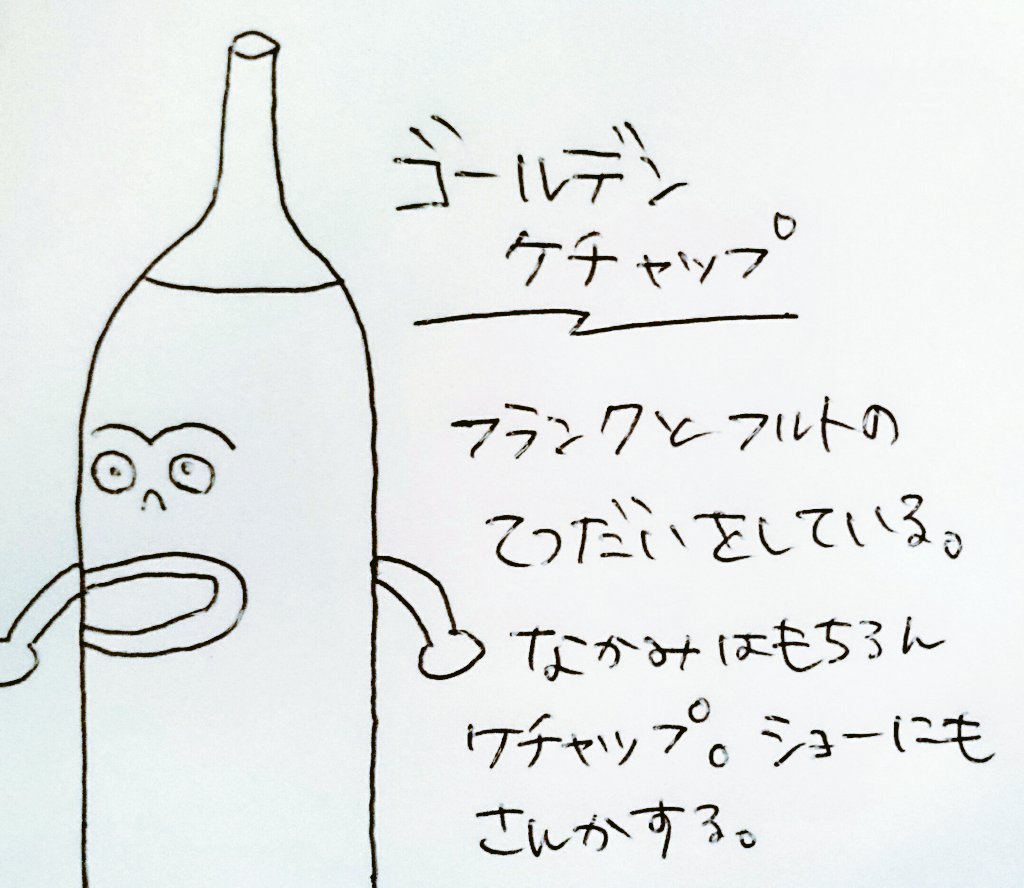 ゴールデン
ケチャップ
フランクとフルトの
てつだいをしている。
なかみはもちろん
ケチャップ。ショーにも
さんかする。